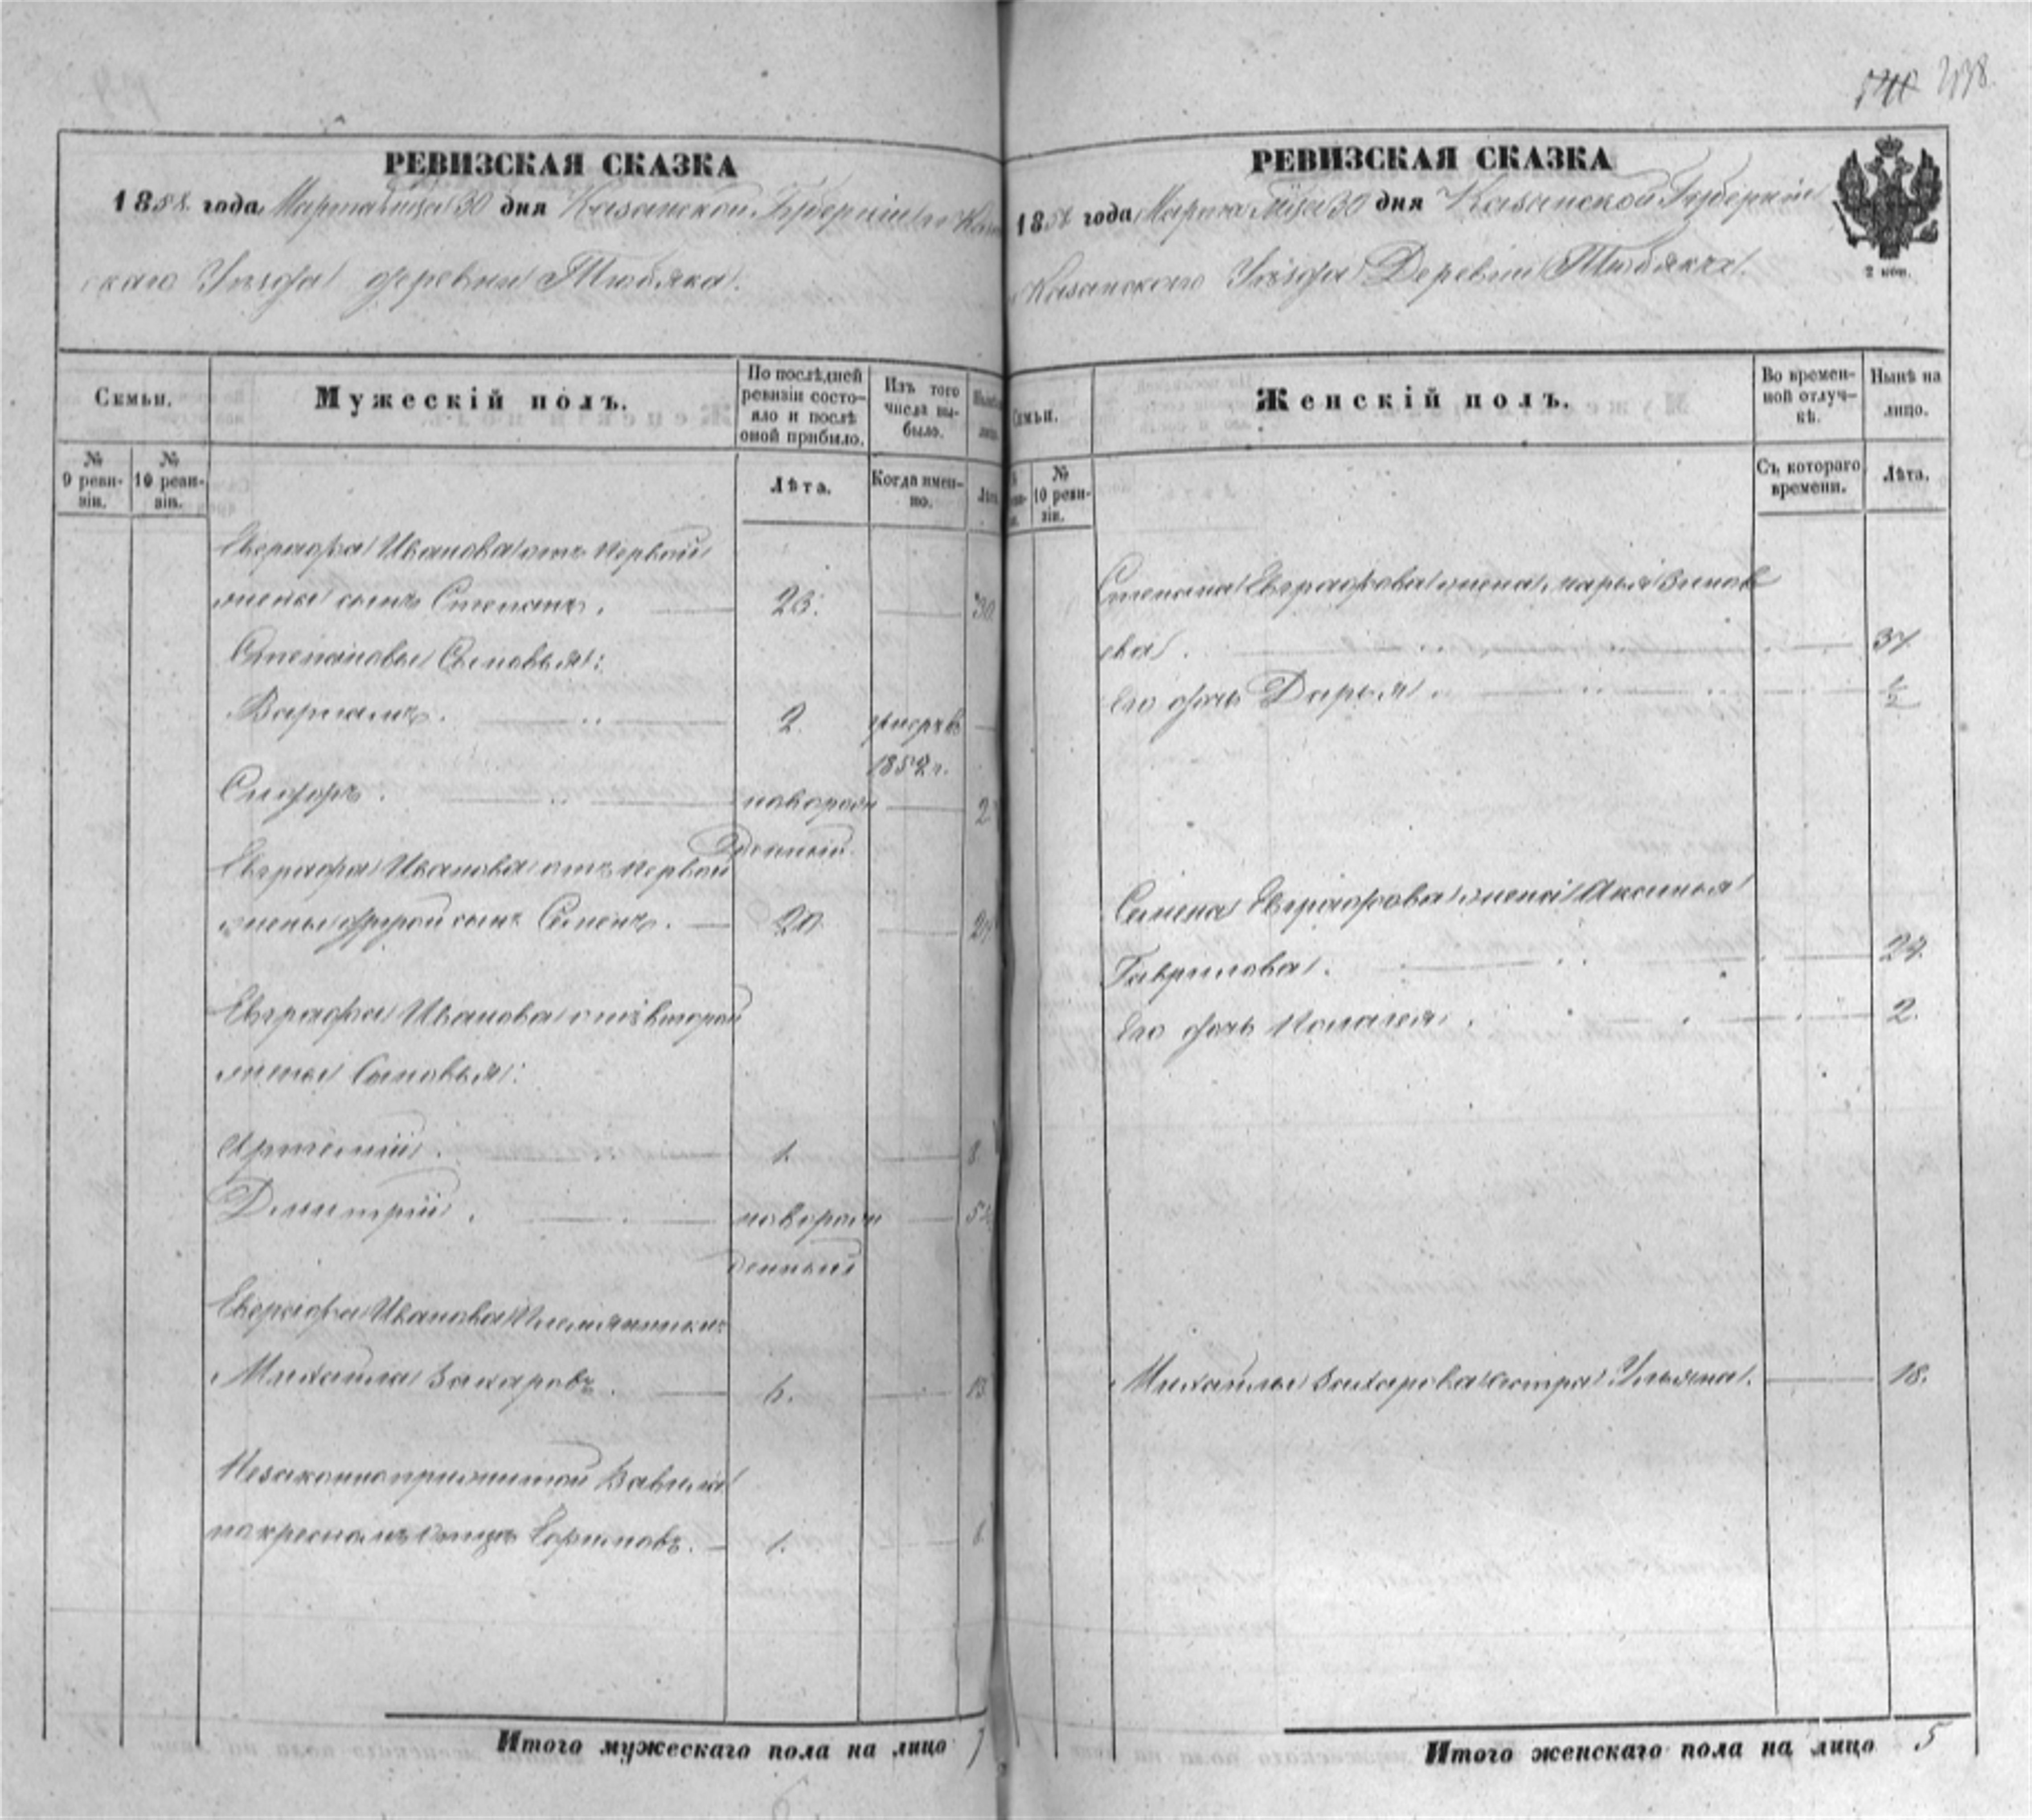 438.
РЕВИЗСКАЯ СКАЗКА
1858 года Марта М̃ца 30 дня Казанской Губерніи
скаго Уѣзда деревни Тюбяка.
Семьи.
Мужескій полъ.
По послѣдней ревизіи состояло и послѣ оной прибыло.
Изъ того числа выбыло.
№ 9 ревизіи.
№ 10 ревизіи.
Лѣта.
Когда именно.
Лѣта
Евграфа Иванова отъ первой
жены сынъ Степанъ. 23. 30
Степановы Сыновья:
Варламъ. 2. умеръ въ
1852 г.
Сидоръ. новорож 2
денный
Евграфа Иванова отъ первой
жены другой сынъ Семенъ. 20
Евграфа Иванова отъ второй
жены Сыновья:
Артемій. 1. 8
Дмитрій. новорож 5
денный
Евграфа Иванова Племянникъ
Михайла Захаровъ. 6. 13
Незаконноприжитой Вавила
по крестномъ отцѣ Ефимовъ. 1. 8
Итого мужескаго пола на лицо 7
РЕВИЗСКАЯ СКАЗКА
1858 года Марта М̃ца 30 дня Казанской Губерніи
Казанскаго Уѣзда Деревни Тюбяка.
2 коп.
Семьи.
Женскій полъ.
Во временной отлучкѣ.
Нынѣ на лицо.
№ 10 ревизіи.
Съ котораго времени.
Лѣта.
Степана Евграфова жена Марья Зиновь
ева. 31
Его дочь Дарья. ½
Семена Евграфова жена Аксинья
Гаврилова. 27.
Его дочь Пелагея. 2.
Михайлы Захарова сестра Ульяна. 18.
Итого женскаго пола на лицо 5